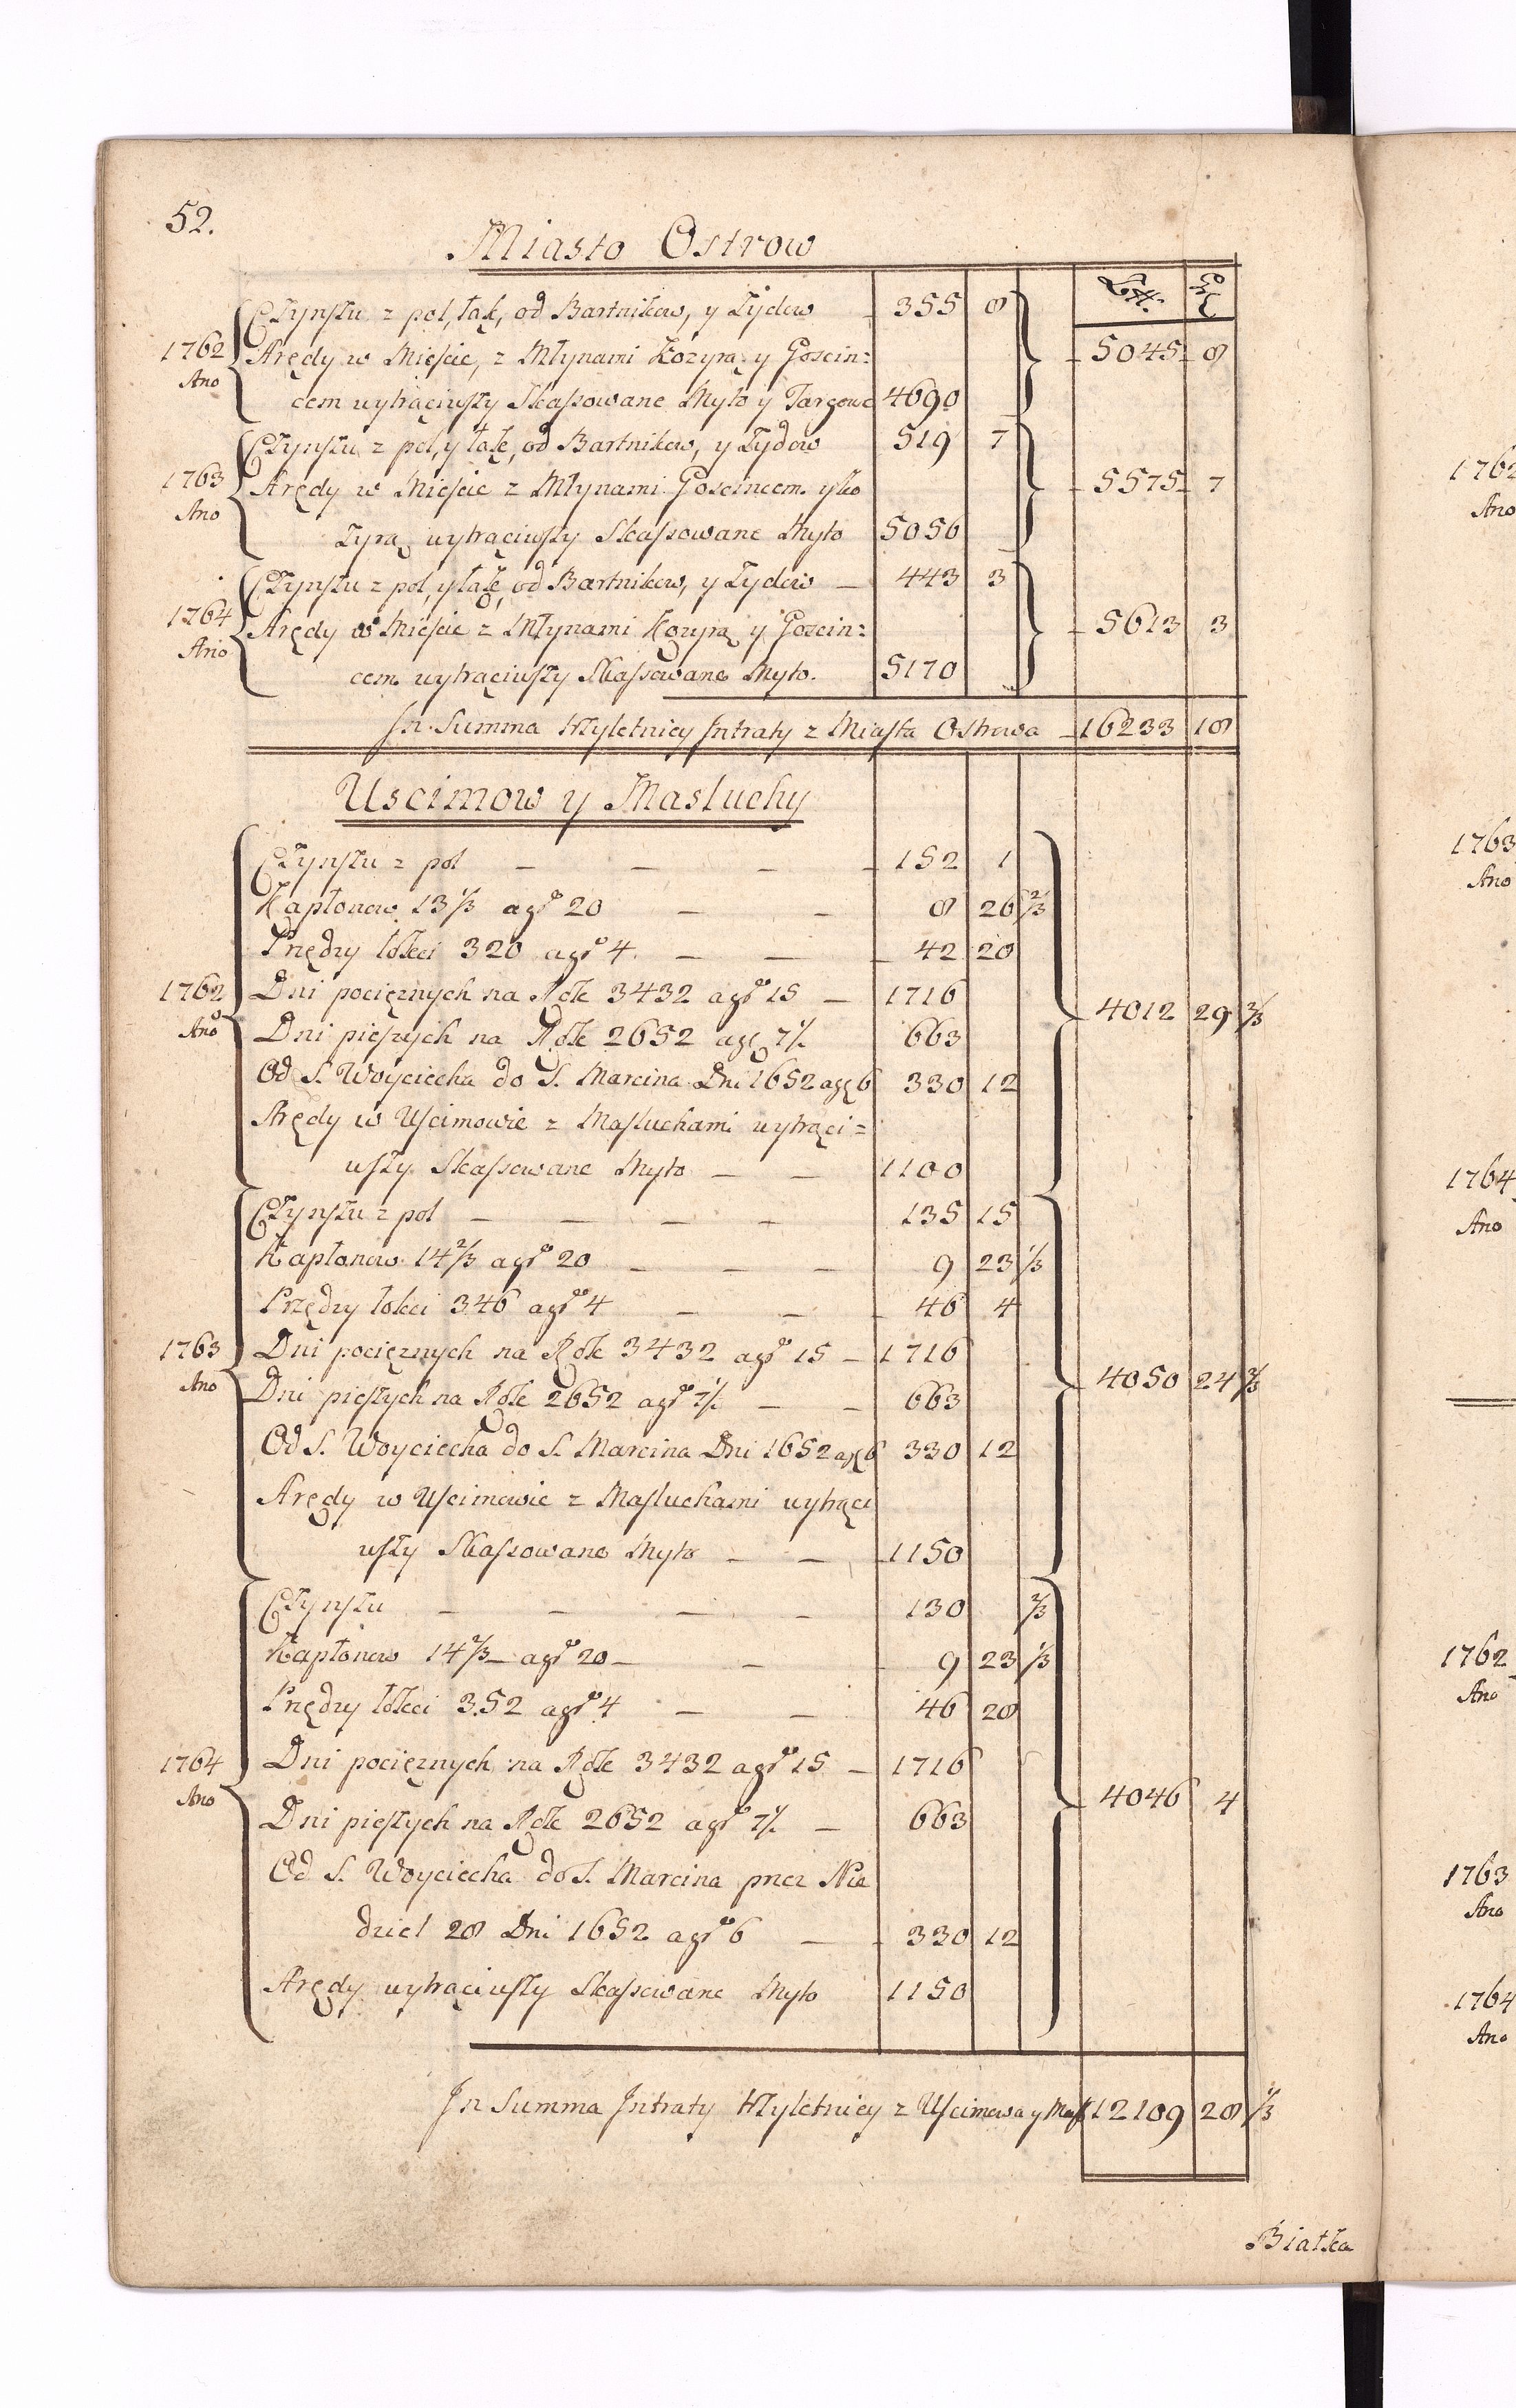 52.
Miasto Ostrow
Zł: gr
Czynszu z pol, łąk, od Bartnikow, y Zydow 355 8
1762 Arędy w Mieście, z Młynami Kozyrą y Goscin= 5045 8
Ano
cem wytrąciwszy Skassowane Myto y Targowe 4690
Czynszu z pol, y łąk, od Bartnikow, y Zydow 519 7
1763 Arędy w Mieście z Młynami Goscincem y Ko 5575 7
Ano
zyrą wytrąciwszy Skassowane Myto 5056
Czynszu z pol, y łąk, od Bartnikow, y Zydow — 443 3
1764 Arędy w Mieście z Młynami Kozyrą y Goscin= 5613 3
Ano
cem wytrąciwszy Skassowane Myto. 5170
Jn Summa trzyletniey Jntraty z Miasta Ostrowa — 16233 18
Uscimow y Masluchy
Czynszu z pol — — — — 152 1
Kapłonow 13 1/3 a gro 20 — — 8 26 2/3
Przędzy łokci 320 a gro 4. — — 42 20
1762 Dni pociężnych na Rok 3432 a gro 15 — 1716 4012 29 2/3
Ano
Dni pieszych na Rok 2652 a gr 7½ 663
Od S. Woyciecha do S. Marcina Dni 1652 a gr 6 330 12
Arędy w Uscimowie z Masluchami wytrąci=
wszy Skassowane Myto — — 1100
Czynszu z pol — — — — 135 15
Kapłonow 14 2/3 a gro 20 — — — 9 23 1/3
Przędzy łokci 346 a gro 4 — — 46 4
1763 Dni pociężnych na Rok 3432 a gro 15 — 1716 4050 24 1/3
Ano
Dni pieszych na Rok 2652 a gro 7½ — — 663
Od S. Woyciecha do S. Marcina Dni 1652 a gr 6 330 12
Arędy w Uscimowie z Masluchami wytrąci
wszy Skassowane Myto — — 1150
Czynszu — — — — 130 2/3
Kapłonow 14 2/3 — a gro 20 — — 9 23 1/3
Przędzy łokci 352 a gro 4 — — 46 28
1764 Dni pociężnych na Rok 3432 a gro 15 — 1716 4046 4
Ano
Dni pieszych na Rok 2652 a gro 7½ — 663
Od S. Woyciecha do S. Marcina przez Nie
dziel 28 Dni 1652 a gro 6 — 330 12
Arędy wytrąciwszy Skassowane Myto 1150
Jn Summa Jntraty trzyletniey z Uscimowa y Mas 12109 28 1/3
Białka
1762
Ano
1763
Ano
1764
Ano
1762
Ano
1763
Ano
1764
Ano